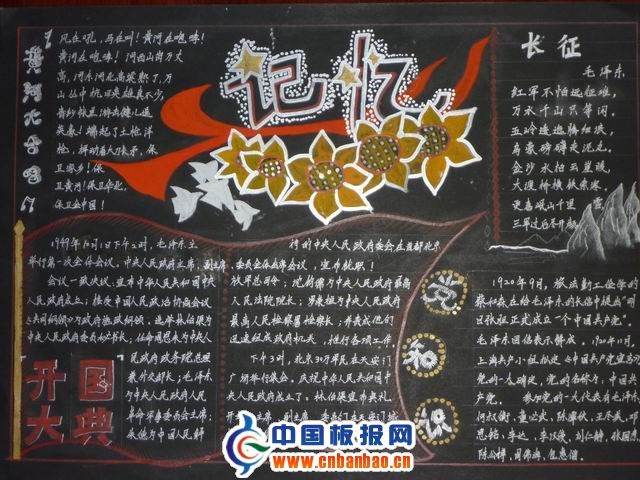 黄河大合唱
风在吼，马在叫！黄河在咆哮！
黄河在咆哮！河西山岗万丈
高，河东河北高粱熟了，万
山丛中抗日英雄真不少，
青纱帐里游击健儿逞
英豪！端起了土枪洋
枪，挥动着大刀长矛，保
卫家乡！保
卫黄河！保卫华北，
保卫全中国！
记忆
长征
毛泽东
红军不怕远征难，
万水千山只等闲。
五岭逶迤腾细浪，
乌蒙磅礴走泥丸。
金沙水拍云崖暖，
大渡桥横铁索寒。
更喜岷山千里雪
三军过后尽开颜
开国大典
1949年10月1日下午2时，毛泽东主
举行第一次全体会议，中央人民政府主席，副主席，
会议一致决议，宣布中华人民共和国中
人民政府成立；接受中国人民政治协商会议
共同纲领》为政府施政纲领，选举林伯渠为
中央人民政府委员会秘书长；任命周恩来为中央
人民政府政务院总理
兼外交部长；毛泽东
为中央人民政府人民
革命军事委员会主席；
朱德为中国人民解
持的中央人民政府委员会在首都北京
委员全体出席会议，宣布就职！
放军总司令；沈钧儒为中央人民政府最高
人民法院院长；罗荣桓为中央人民政府
最高人民检察署检察长；并责成他们
迅速组成政府机关，推行各项工作
下午3时，北京30万军民在天安门
广场举行集会，庆祝中华人民共和国中
央人民政府成立了。林伯渠宣布典礼
党知识
1920年9月，旅法勤工俭学的
蔡和森在给毛泽东的长信中提出"明
目张胆正式成立一个中国共产党"。
毛泽东回信表示赞成。1920年11月，
上海共产小组拟定《中国共产党宣言》
党的一大确定，党的名称为，中国共
产党。参加党的一大代表有毛泽东，
何叔衡，董必武，陈潭秋，王尽美，邓
恩铭，李达，李汉俊，刘仁静，张国焘，
陈公博，周佛海，包惠僧。
中国板报网
www.cnbanbao.cn